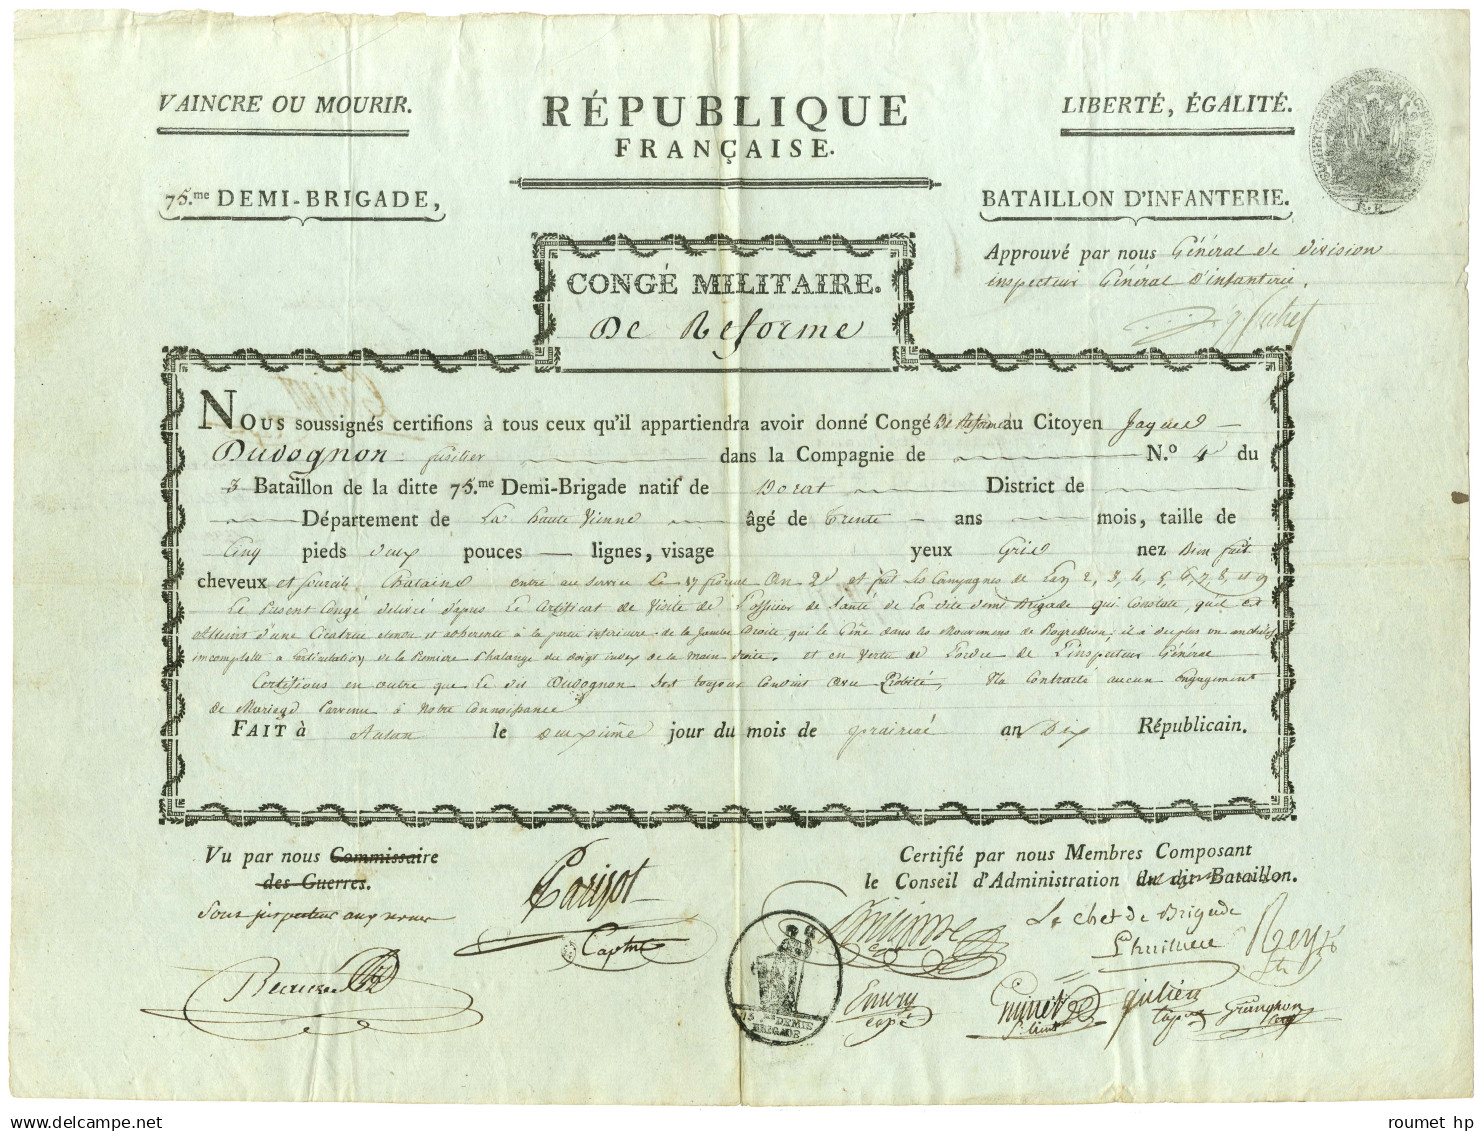 VAINCRE OU MOURIR.
RÉPUBLIQUE
FRANÇAISE.
LIBERTÉ, ÉGALITÉ.
R. F.
75.me DEMI-BRIGADE,
BATAILLON D'INFANTERIE.
Approuvé par nous Général de division
inspecteur Général d'infanterie.
CONGÉ MILITAIRE.
De Reforme
NOUS soussignés certifions à tous ceux qu'il appartiendra avoir donné Congé De Reforme au Citoyen Jaques
Duvognon fusilier dans la Compagnie de N.º 4 du
3 Bataillon de la ditte 75.me Demi-Brigade natif de District de
Département de La haute Vienne âgé de Trente ans mois, taille de
Cinq pieds deux pouces lignes, visage yeux Gris nez Bien fait
cheveux et sourcils Chatains entré au service Le 17 floreal an 2e et fait Les Campagnes de L'an 2, 3, 4, 5, 6, 7, 8, et 9
Le Present Congé délivré d'apres Le Certificat de Visite de L'officier de Santé de La dite demi Brigade qui Constate, qu'il est
Atteint d'une Cicatrice etendue et adherente à la partie inferieure de la Jambe Droite, qui le Gêne dans les Mouvemens de Progression, il a de plus un anchilose
incomplette a l'articulation de la Premiere Phalange du doigt index de la main droite. et en Vertu de L'ordre de L'inspecteur Général
Certifions en outre que Le dit Duvognon s'est toujours Conduit avec Probité, N'a Contracté aucun engagement
de Mariage Parvenu à Notre Connoissance
FAIT à le deuxième jour du mois de prairial an Dix Républicain.
Vu par nous Commissaire
des Guerres.
Sous inspecteur aux revues
Parizot
Capitne
Certifié par nous Membres Composant
le Conseil d'Administration du dit Bataillon.
Le chef de Brigade
Lhuillier
75 me DEMIE
BRIGADE
Emery
capne